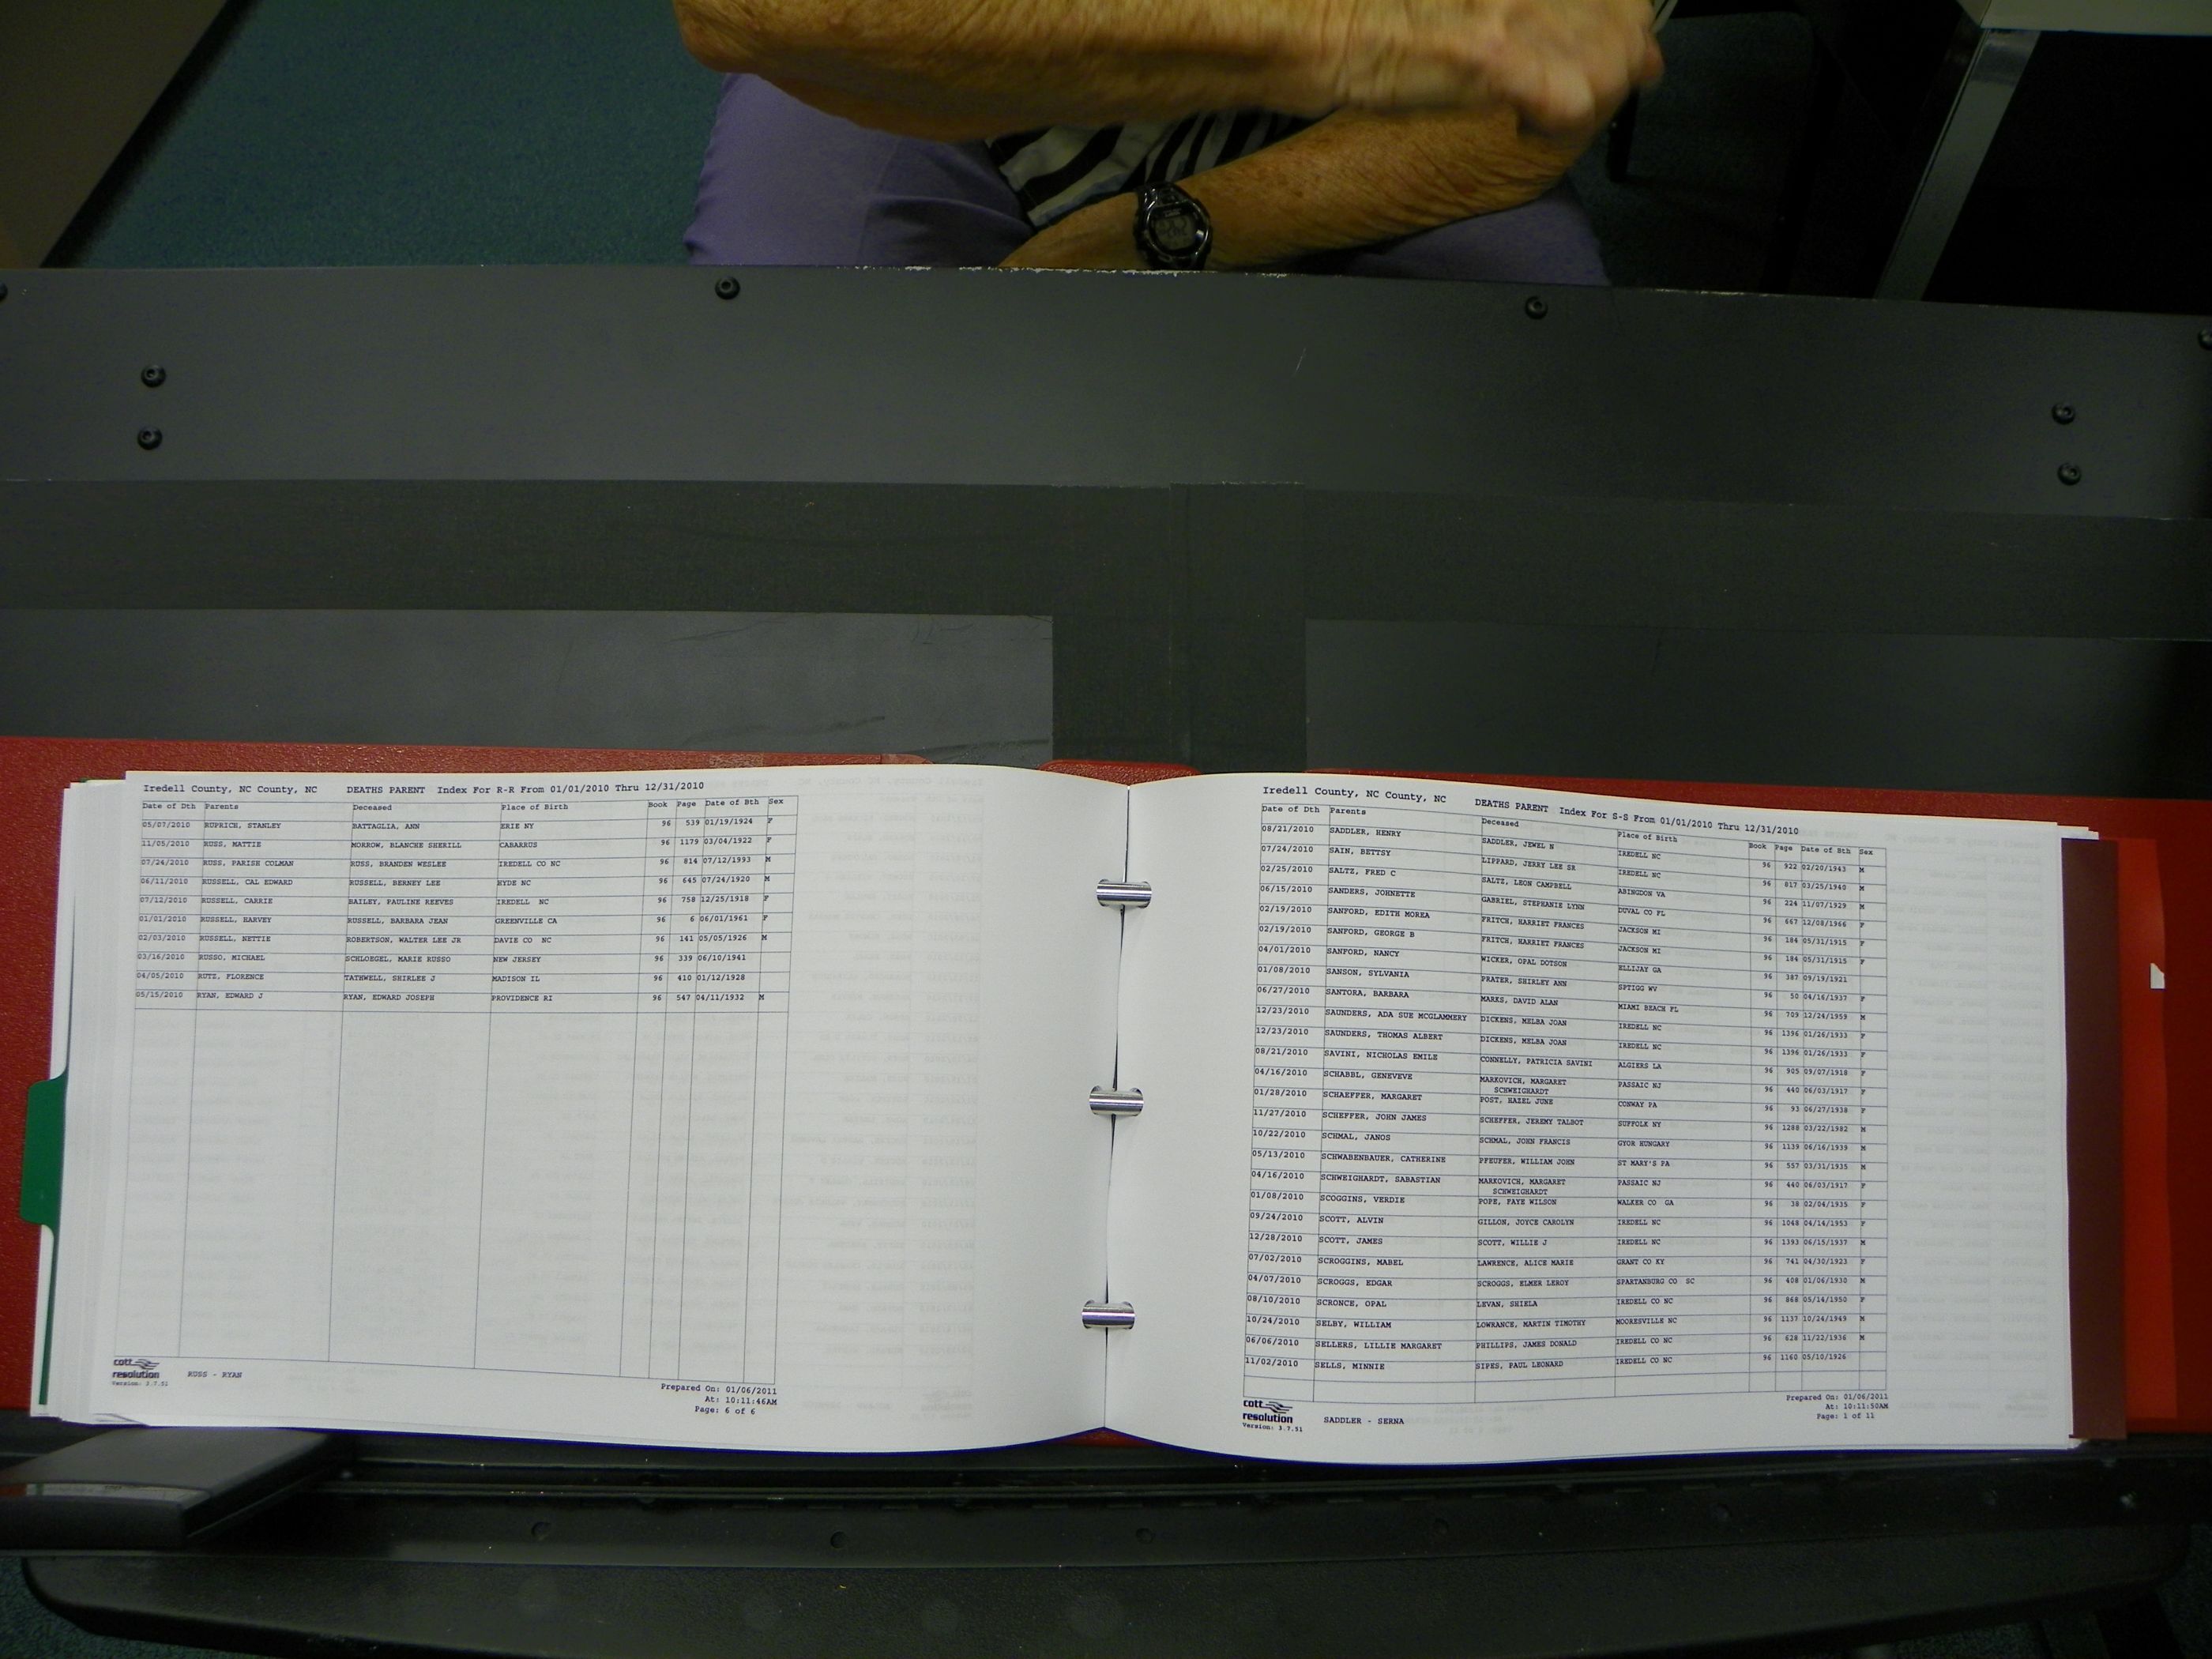 Iredell County, NC County, NC DEATHS PARENT Index For R-R From 01/01/2010 Thru 12/31/2010
Date of Dth Parents Deceased Place of Birth Book Page Date of Bth Sex
05/07/2010 RUPRICH, STANLEY BATTAGLIA, ANN ERIE NY 96 539 01/19/1924 F
11/05/2010 RUSS, MATTIE MORROW, BLANCHE SHERILL CABARRUS 96 1179 03/04/1922 F
07/24/2010 RUSS, PARISH COLMAN RUSS, BRANDEN WESLEE IREDELL CO NC 96 814 07/12/1993 M
06/11/2010 RUSSELL, CAL EDWARD RUSSELL, BERNEY LEE HYDE NC 96 645 07/24/1920 M
07/12/2010 RUSSELL, CARRIE BAILEY, PAULINE REEVES IREDELL NC 96 758 12/25/1918 F
01/01/2010 RUSSELL, HARVEY RUSSELL, BARBARA JEAN GREENVILLE CA 96 6 06/01/1961 F
02/03/2010 RUSSELL, NETTIE ROBERTSON, WALTER LEE JR DAVIE CO NC 96 141 05/05/1926 M
03/16/2010 RUSSO, MICHAEL SCHLOEGEL, MARIE RUSSO NEW JERSEY 96 339 06/10/1941
04/05/2010 RUTZ, FLORENCE TATHWELL, SHIRLEE J MADISON IL 96 410 01/12/1928
05/15/2010 RYAN, EDWARD J RYAN, EDWARD JOSEPH PROVIDENCE RI 96 547 04/11/1932 M
cott
resolution
Version: 3.7.51
RUSS - RYAN
Prepared On: 01/06/2011
At: 10:11:46AM
Page: 6 of 6
Iredell County, NC County, NC DEATHS PARENT Index For S-S From 01/01/2010 Thru 12/31/2010
Date of Dth Parents Deceased Place of Birth Book Page Date of Bth Sex
08/21/2010 SADDLER, HENRY SADDLER, JEWEL N IREDELL NC 96 922 02/20/1943 M
07/24/2010 SAIN, BETTSY LIPPARD, JERRY LEE SR IREDELL NC 96 817 03/25/1940 M
02/25/2010 SALTZ, FRED C SALTZ, LEON CAMPBELL ABINGDON VA 96 224 11/07/1929 M
06/15/2010 SANDERS, JOHNETTE GABRIEL, STEPHANIE LYNN DUVAL CO FL 96 667 12/08/1966 F
02/19/2010 SANFORD, EDITH MOREA FRITCH, HARRIET FRANCES JACKSON MI 96 184 05/31/1915 F
02/19/2010 SANFORD, GEORGE B FRITCH, HARRIET FRANCES JACKSON MI 96 184 05/31/1915 F
04/01/2010 SANFORD, NANCY WICKER, OPAL DOTSON ELLIJAY GA 96 387 09/19/1921
01/08/2010 SANSON, SYLVANIA PRATER, SHIRLEY ANN SPTIGG WV 96 50 04/16/1937 F
06/27/2010 SANTORA, BARBARA MARKS, DAVID ALAN MIAMI BEACH FL 96 709 12/24/1959 M
12/23/2010 SAUNDERS, ADA SUE MCGLAMMERY DICKENS, MELBA JOAN IREDELL NC 96 1396 01/26/1933 F
12/23/2010 SAUNDERS, THOMAS ALBERT DICKENS, MELBA JOAN IREDELL NC 96 1396 01/26/1933 F
08/21/2010 SAVINI, NICHOLAS EMILE CONNELLY, PATRICIA SAVINI ALGIERS LA 96 905 09/07/1918 F
04/16/2010 SCHABBL, GENEVEVE MARKOVICH, MARGARET PASSAIC NJ 96 440 06/03/1917 F
SCHWEIGHARDT
01/28/2010 SCHAEFFER, MARGARET POST, HAZEL JUNE CONWAY PA 96 93 06/27/1938 F
11/27/2010 SCHEFFER, JOHN JAMES SCHEFFER, JEREMY TALBOT SUFFOLK NY 96 1288 03/22/1982 M
10/22/2010 SCHMAL, JANOS SCHMAL, JOHN FRANCIS GYOR HUNGARY 96 1139 06/16/1939 M
05/13/2010 SCHWABENBAUER, CATHERINE PFEUFER, WILLIAM JOHN ST MARY'S PA 96 557 03/31/1935 M
04/16/2010 SCHWEIGHARDT, SABASTIAN MARKOVICH, MARGARET PASSAIC NJ 96 440 06/03/1917 F
SCHWEIGHARDT
01/08/2010 SCOGGINS, VERDIE POPE, FAYE WILSON WALKER CO GA 96 38 02/04/1935 F
09/24/2010 SCOTT, ALVIN GILLON, JOYCE CAROLYN IREDELL NC 96 1048 04/14/1953 F
12/28/2010 SCOTT, JAMES SCOTT, WILLIE J IREDELL NC 96 1393 06/15/1937 M
07/02/2010 SCROGGINS, MABEL LAWRENCE, ALICE MARIE GRANT CO KY 96 741 04/30/1923 F
04/07/2010 SCROGGS, EDGAR SCROGGS, ELMER LEROY SPARTANBURG CO SC 96 408 01/06/1930 M
08/10/2010 SCRONCE, OPAL LEVAN, SHIELA IREDELL CO NC 96 868 05/14/1950 F
10/24/2010 SELBY, WILLIAM LOWRANCE, MARTIN TIMOTHY MOORESVILLE NC 96 1137 10/24/1949 M
06/06/2010 SELLERS, LILLIE MARGARET PHILLIPS, JAMES DONALD IREDELL CO NC 96 628 11/22/1936 M
11/02/2010 SELLS, MINNIE SIPES, PAUL LEONARD IREDELL CO NC 96 1160 05/10/1926
cott
resolution
Version: 3.7.51
SADDLER - SERNA
Prepared On: 01/06/2011
At: 10:11:50AM
Page: 1 of 11